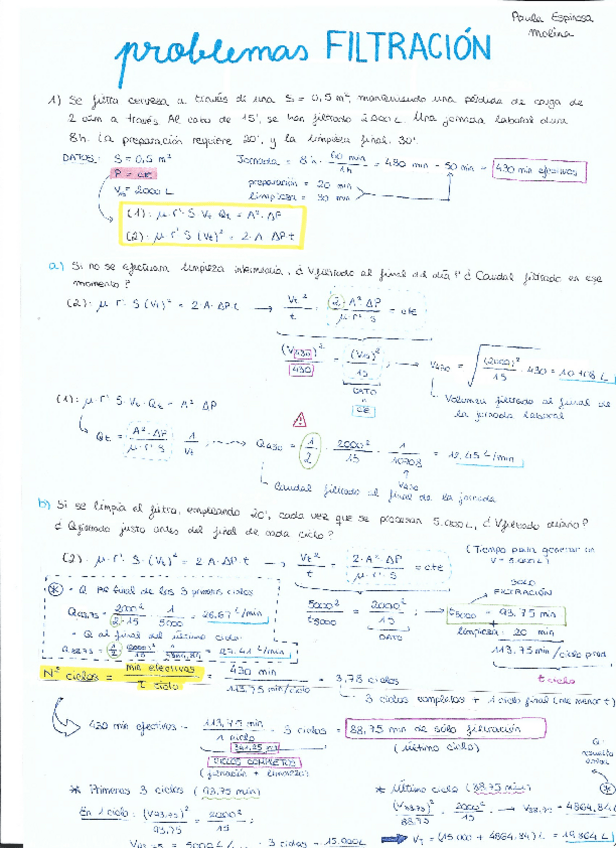 Paula Espinosa
Molina
problemas FILTRACIÓN
1) Se filtra cerveza a través de una S = 0,5 m², manteniendo una pérdida de carga de
2 atm a través Al cabo de 15', se han filtrado 2000 L. Una jornada laboral dura
8h. La preparación requiere 20', y la limpieza final 30'.
DATOS: S = 0,5 m² Jornada = 8 h · 60 min / 1h = 480 min - 50 min = 430 min efectivos
P = cte preparación = 20 min
V₁₅ = 2000 L limpieza = 30 min
(1): μ · r' · S · Vt · Qt = A² · ΔP
(2): μ · r' · S (Vt)² = 2 · A · ΔP t
a) Si no se efectúan limpieza intermedia, ¿ Vfiltrado al final del día? ¿ Caudal filtrado en ese
momento?
(2): μ · r' · S · (Vt)² = 2 · A · ΔP t → Vt² / t = 2 · A² · ΔP / μ · r' · S = cte
(V430)² / 430 = (V15)² / 15 ; V430 = √(2000)² / 15 · 430 = 10.708 L
DATO
CTE
Volumen filtrado al final de
la jornada laboral
(1): μ · r' · S · Vt · Qt = A² ΔP
Qt = A² · ΔP / μ · r' · S · 1 / Vt Q430 = 1/2 · 2000² / 15 · 1 / 10708 = 12,45 L/min
V430
Caudal filtrado al final de la jornada
b) Si se limpia el filtro, empleando 20', cada vez que se procesan 5.000 L, ¿ Vfiltrado diario?
¿ Qfiltrado justo antes del final de cada ciclo?
(2): μ · r' · S · (Vt)² = 2 A ΔP · t → Vt² / t = 2 · A² · ΔP / μ · r' · S = cte
(Tiempo para generar un
V = 5.000 L)
* - Q Al final de los 3 primeros ciclos
Q93,75 = 2000² / 2 · 15 · 1 / 5000 = 26,67 L/min
- Q al final del último ciclo
Q88,75 = 1/2 · 2000² / 15 · 1 / 4864,84 = 27,41 L/min
5000² / t5000 = 2000² / 15 ; t5000 = 93,75 min
DATO
SOLO
FILTRACIÓN
limpieza = 20 min
113,75 min / ciclo prod
t ciclo
Nº ciclos = min efectivos / t ciclo = 430 min / 113,75 min/ciclo = 3,78 ciclos
3 ciclos completos + 1 ciclo final (de menor t)
430 min efectivos - 113,75 min / 1 ciclo · 3 ciclos = 88,75 min de sólo filtración
341,25 min
CICLOS COMPLETOS
(filtración + limpieza)
(último ciclo)
* Primeros 3 ciclos (93,75 min) * Último ciclo (88,75 min)
En 1 ciclo: (V93,75)² / 93,75 = 2000² / 15 ; (V88,75)² / 88,75 = 2000² / 15 → V88,75 = 4864,84 L
V93,75 = 5000 L / 3 ciclos = 15.000 L → VT = (15.000 + 4864,84) L = 19.864 L